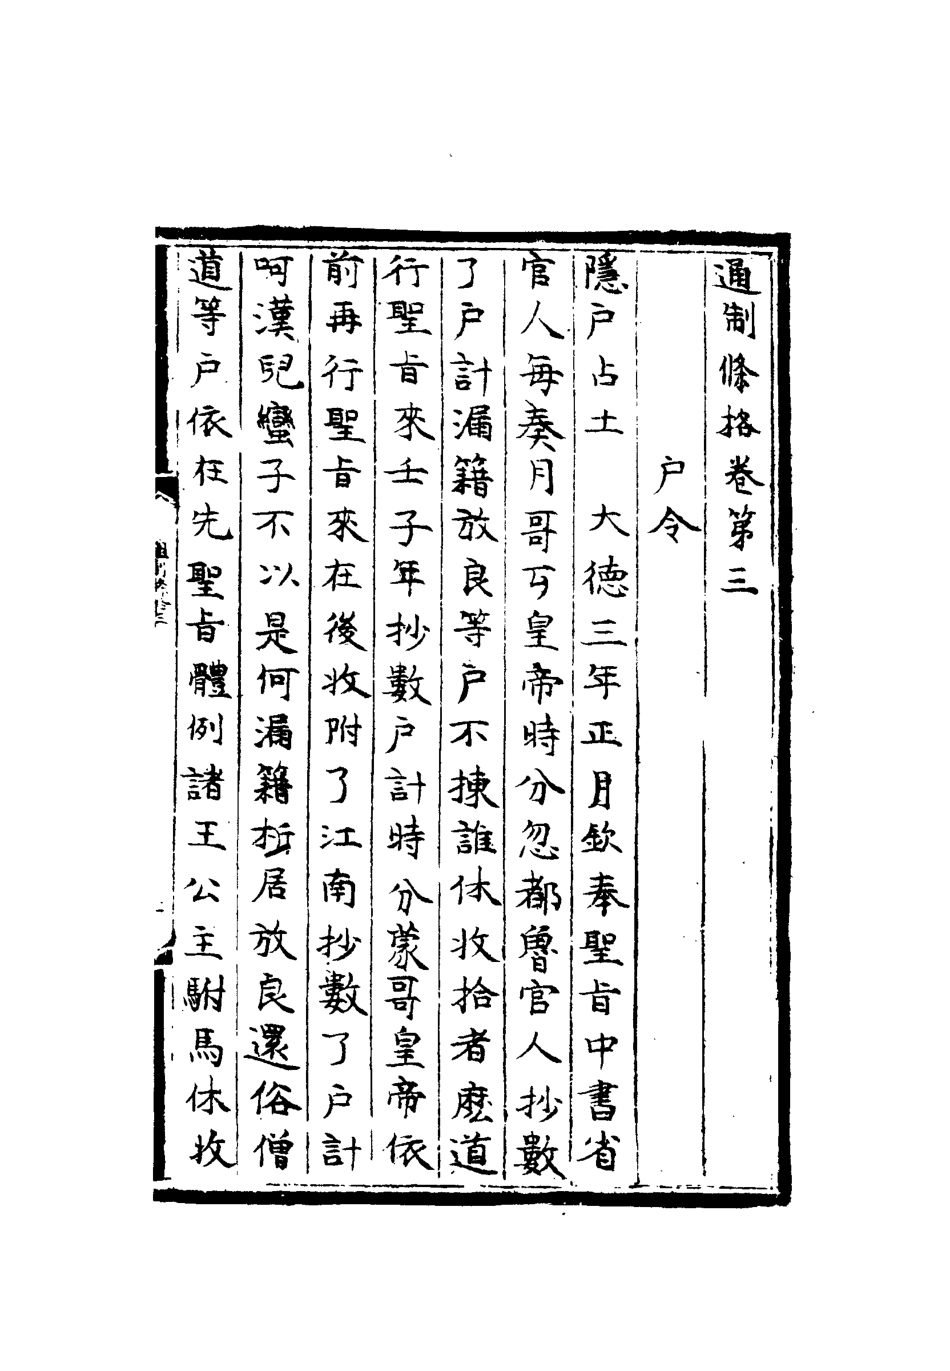 通制條格卷第三
户令
隱户占土　大德三年正月欽奉聖旨中書省
官人每奏月哥歹皇帝時分忽都魯官人抄數
了户計漏籍放良等户不揀誰休收拾者麽道
行聖旨來壬子年抄數户計時分蒙哥皇帝依
前再行聖旨來在後收附了江南抄數了户計
呵漢兒蠻子不以是何漏籍析居放良還俗僧
道等户依在先聖旨體例諸王公主駙馬休收